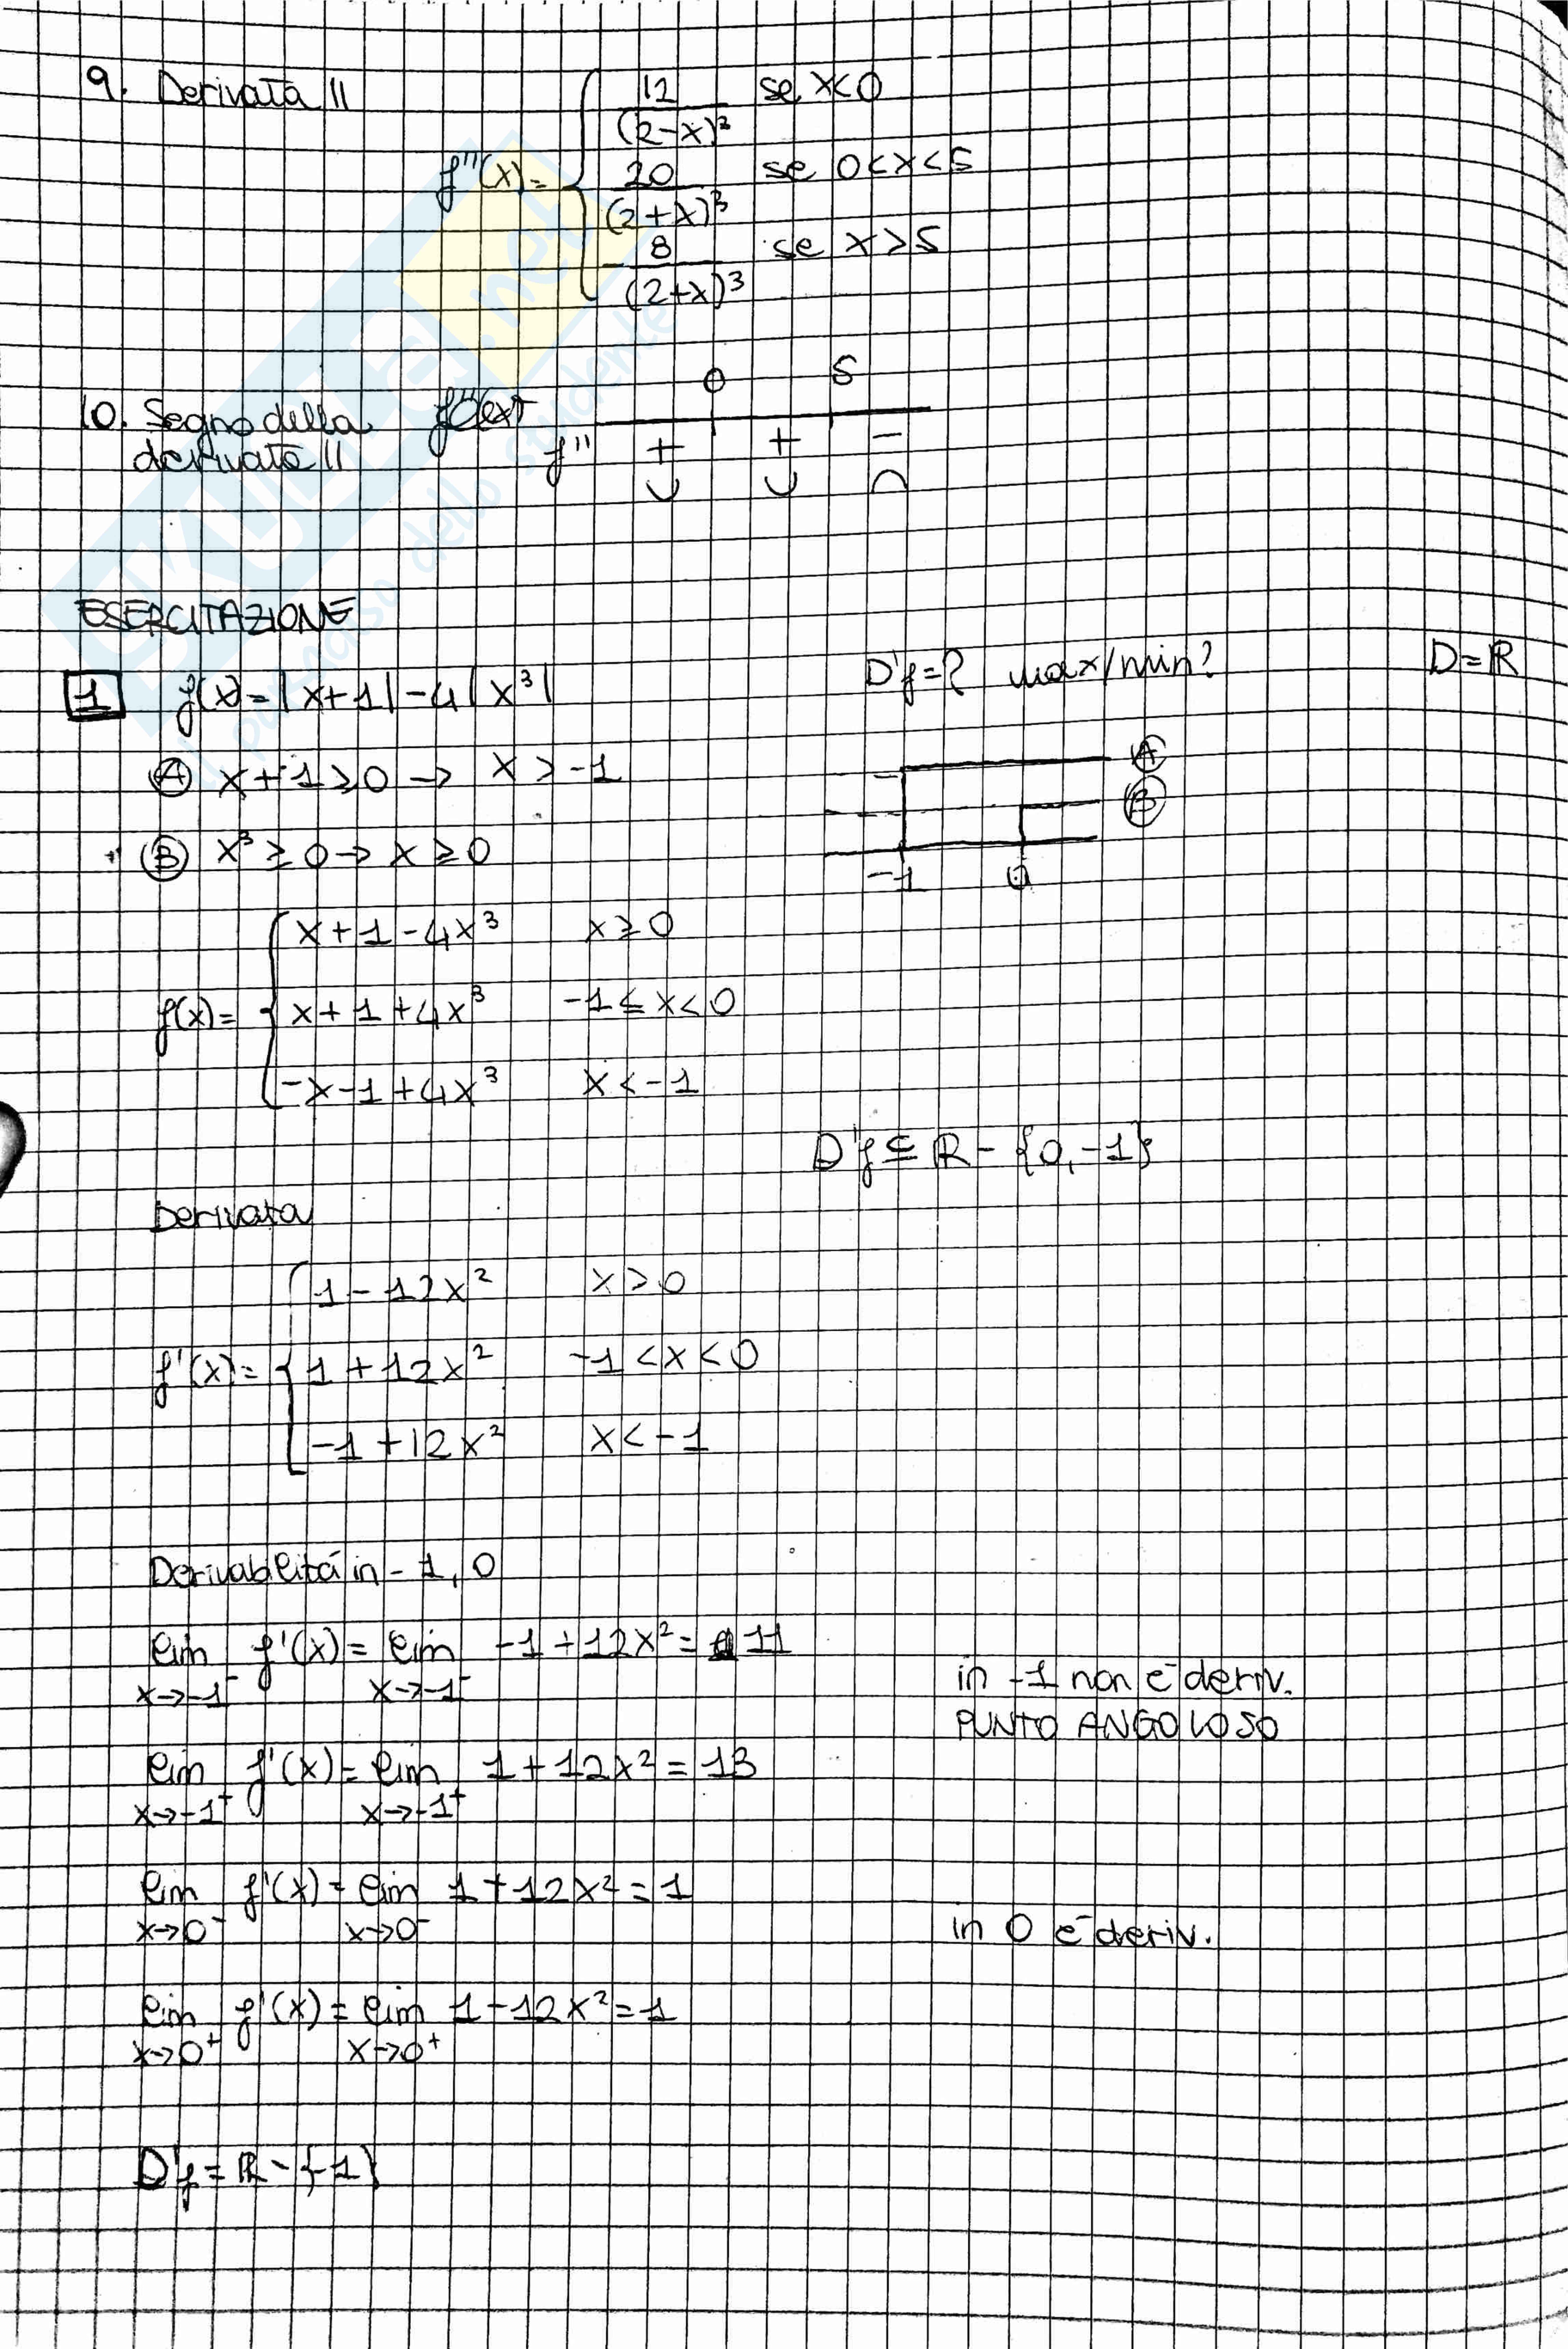 9. Derivata II
f''(x) = { 12/(2-x)³ se x<0
20/(2+x)³ se 0<x<5
-8/(2+x)³ se x>5
10. Segno della derivata II
0 5
f'' + + -
∪ ∪ ∩
ESERCITAZIONE
1 f(x) = |x+1| - 4|x³| D'f = ? max/min? D = ℝ
Ⓐ x+1 ≥ 0 → x > -1 Ⓐ
Ⓑ x³ ≥ 0 → x ≥ 0 Ⓑ
-1 0
f(x) = { x+1-4x³ x ≥ 0
x+1+4x³ -1 ≤ x < 0
-x-1+4x³ x < -1
D'f ⊆ ℝ - {0,-1}
Derivata
f'(x) = { 1-12x² x > 0
1+12x² -1 < x < 0
-1+12x² x < -1
Derivabilitá in -1, 0
lim x→-1⁻ f'(x) = lim x→-1⁻ -1+12x² = 11
in -1 non è deriv.
PUNTO ANGOLOSO
lim x→-1⁺ f'(x) = lim x→-1⁺ 1+12x² = 13
lim x→0⁻ f'(x) = lim x→0⁻ 1+12x² = 1
in 0 è deriv.
lim x→0⁺ f'(x) = lim x→0⁺ 1-12x² = 1
D'f = ℝ - {-1}
SKUOLA.net
il paradiso dello studente